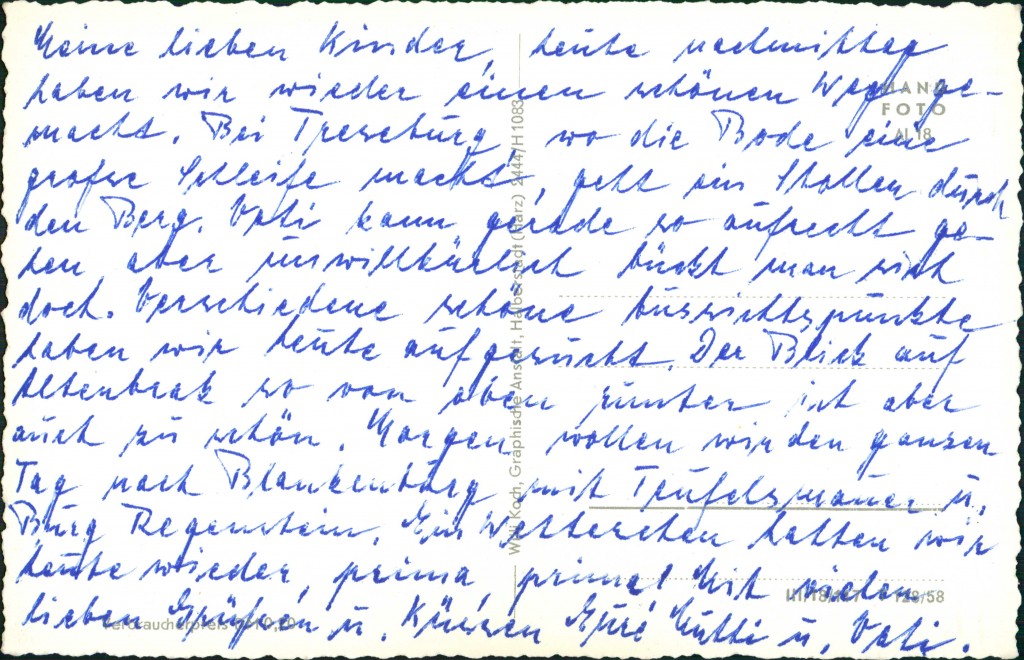 Meine lieben Kinder, heute nachmittag
haben wir wieder einen schönen Weg ge-
macht. Bei Treseburg, wo die Bode eine
große Schleife macht, geht ein Stollen durch
den Berg. Vati kann gerade so aufrecht ge-
hen, aber unwillkürlich bückt man sich
doch. Verschiedene schöne Aussichtspunkte
haben wir heute aufgesucht. Der Blick auf
Altenbrak so von oben runter ist aber
auch zu schön. Morgen wollen wir den ganzen
Tag nach Blankenburg mit Teufelsmauer u.
Burg Regenstein. Ein Wetterchen hatten wir
heute wieder, prima, prima! Mit vielen
lieben Grüßen u. Küssen Eure Mutti u. Vati.
HAND
FOTO
Willi Koch, Graphische Anstalt, Halberstadt (Harz) 2444/H1083
Verbraucherpreis